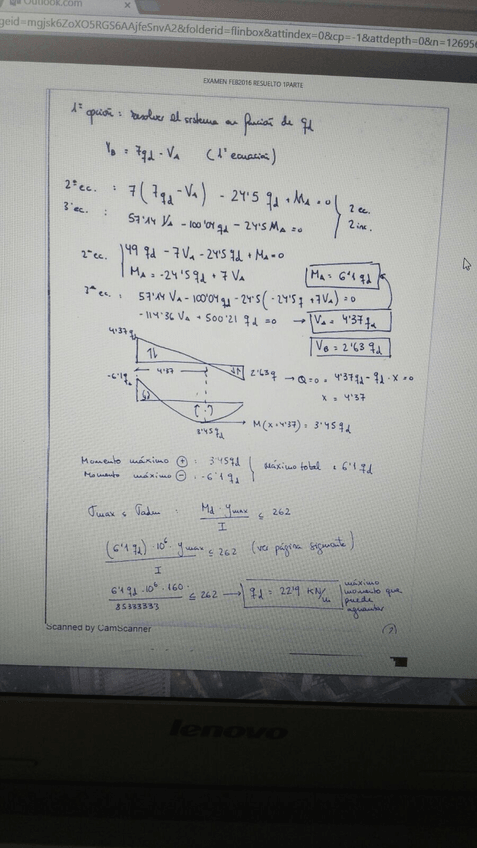 Outlook.com
geid=mgjsk6ZoXO5RGS6AAjfeSnvA2&folderid=flinbox&attindex=0&cp=-1&attdepth=0&n=126956
EXAMEN FEB2016 RESUELTO 1PARTE
1ª opción: resolver el sistema en función de qd
VB = 7qd - VA (1ª ecuación)
2ª ec. : 7(7qd - VA) - 24'5 qd + MA = 0
3ª ec. : 57'14 VA - 100'04 qd - 24'5 MA = 0
2 ec.
2 inc.
2ª ec. 49 qd - 7 VA - 24'5 qd + MA = 0
MA = -24'5 qd + 7 VA
MA = 6'1 qd
3ª ec: 57'14 VA - 100'04 qd - 24'5 (-24'5 q + 7VA) = 0
-114'36 VA + 500'21 qd = 0 → VA = 4'37 qd
VB = 2'63 qd
4'37 qd
4'37
2'63 q → Q=0 = 4'37 qd - qd · x = 0
x = 4'37
-6'1 qd
3'45 qd
M(x=4'37) = 3'45 qd
Momento máximo + : 3'45 qd
Momento máximo - : -6'1 qd
Máximo total = 6'1 qd
σmax ≤ σadm : Md · ymax / I ≤ 262
(6'1 qd) · 10⁶ · ymax / I ≤ 262 (ver página siguiente)
6'1 qd · 10⁶ · 160 / 85333333 ≤ 262 → qd = 22'9 KN/m
máximo
momento que
puede
aguantar
Scanned by CamScanner
lenovo